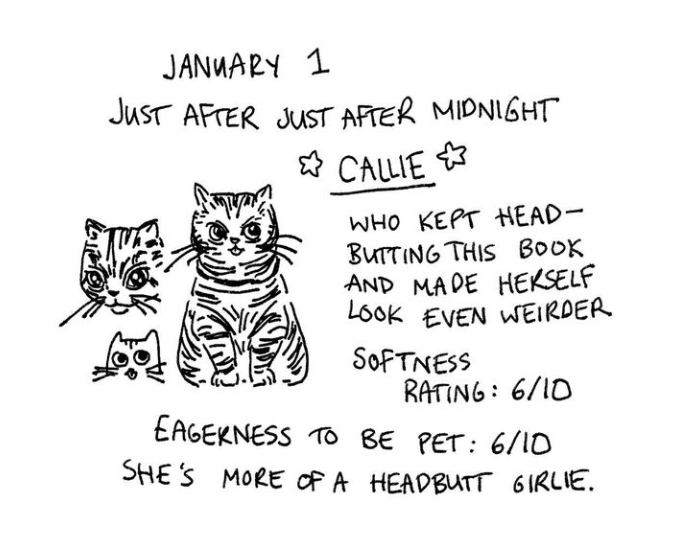 JANUARY 1
JUST AFTER JUST AFTER MIDNIGHT
CALLIE
WHO KEPT HEAD-
BUTTING THIS BOOK
AND MADE HERSELF
LOOK EVEN WEIRDER
SOFTNESS
RATING: 6/10
EAGERNESS TO BE PET: 6/10
SHE'S MORE OF A HEADBUTT GIRLIE.